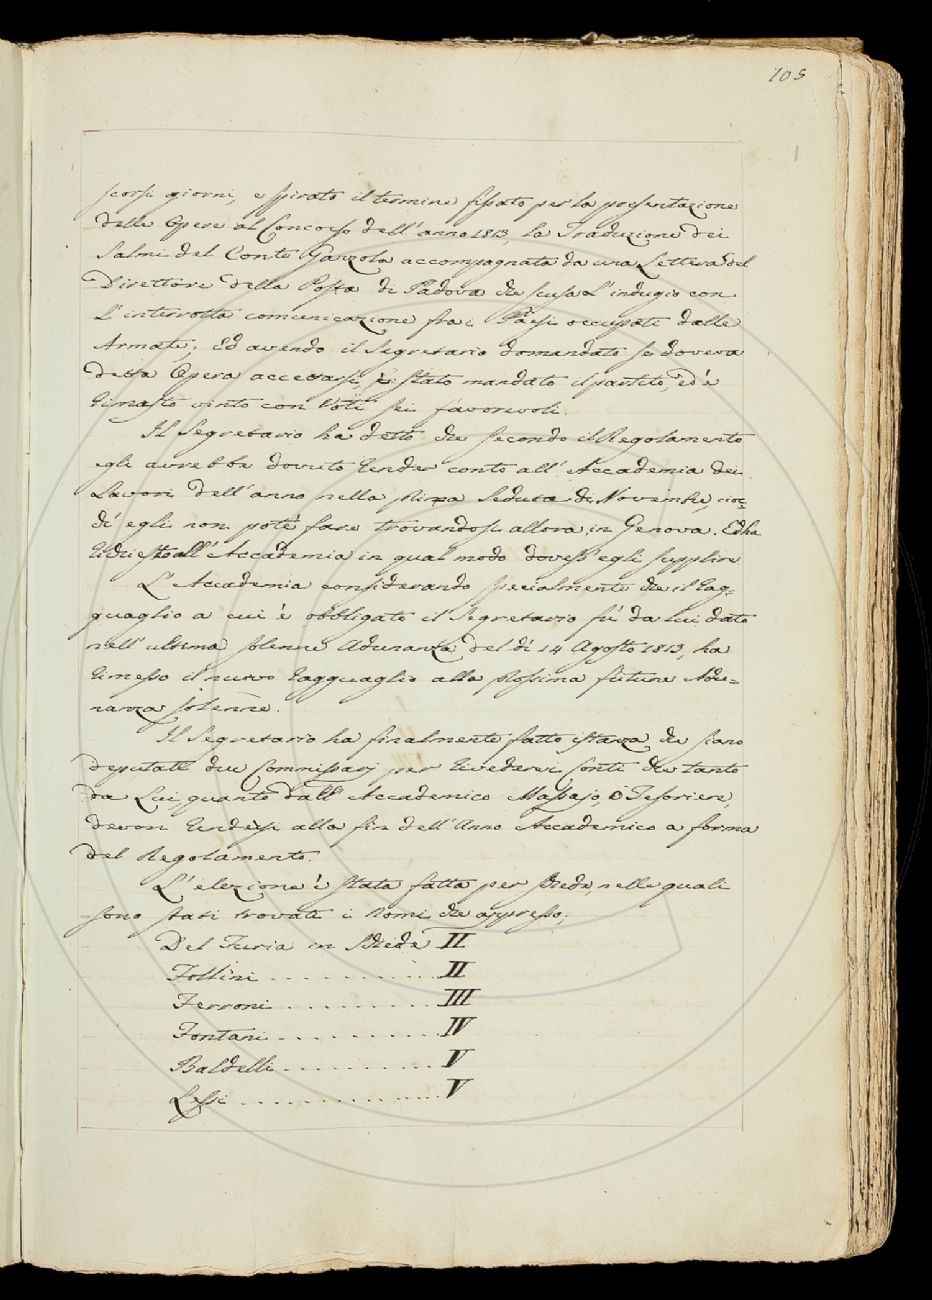 105
scorsi giorni, e spirato il termine fissato per la presentazione
delle Opere al Concorso dell'anno 1813, la Traduzione dei
Salmi del Conte Gazzola accompagnata da una Lettera del
Direttore della Posta di Padova che scusa l'indugio con
l'interrotta comunicazione fra i Paesi occupati dalle
Armate; Ed avendo il Segretario domandato se doveva
detta Opera accettarsi, è stato mandato il partito, ed è
rimasto vinto con Voti sei favorevoli.
Il Segretario ha detto che secondo il Regolamento
egli avrebbe dovuto render conto all'Accademia dei
Lavori dell'anno nella Seduta di Novembre, cioc=
chè egli non potè fare trovandosi allora in Genova. Ed ha
richiesto all'Accademia in qual modo dovess'egli supplire
L'Accademia considerando specialmente che il Rag=
guaglio a cui è obbligato il Segretario fù da lui dato
nell'ultima solenne Adunanza del dì 14 Agosto 1813, ha
rimesso il nuovo ragguaglio alla prossima futura Adu=
nanza solenne.
Il Segretario ha finalmente fatto istanza che siano
deputati due Commissarj per rivedere i Conti che tanto
da Lui, quanto dall'Accademico Massajo, o Tesoriere,
devon rendersi alla fin dell'Anno Accademico a forma
del Regolamento.
L'elezione è stata fatta per schede, nelle quali
sono stati trovati i Nomi che appresso;
Del Furia in Schede II
Follini . . . . . . . . . . . II
Ferroni . . . . . . . . . . . III
Fontani . . . . . . . . . . . IV
Baldelli . . . . . . . . . . V
Lessi . . . . . . . . . . . . . V